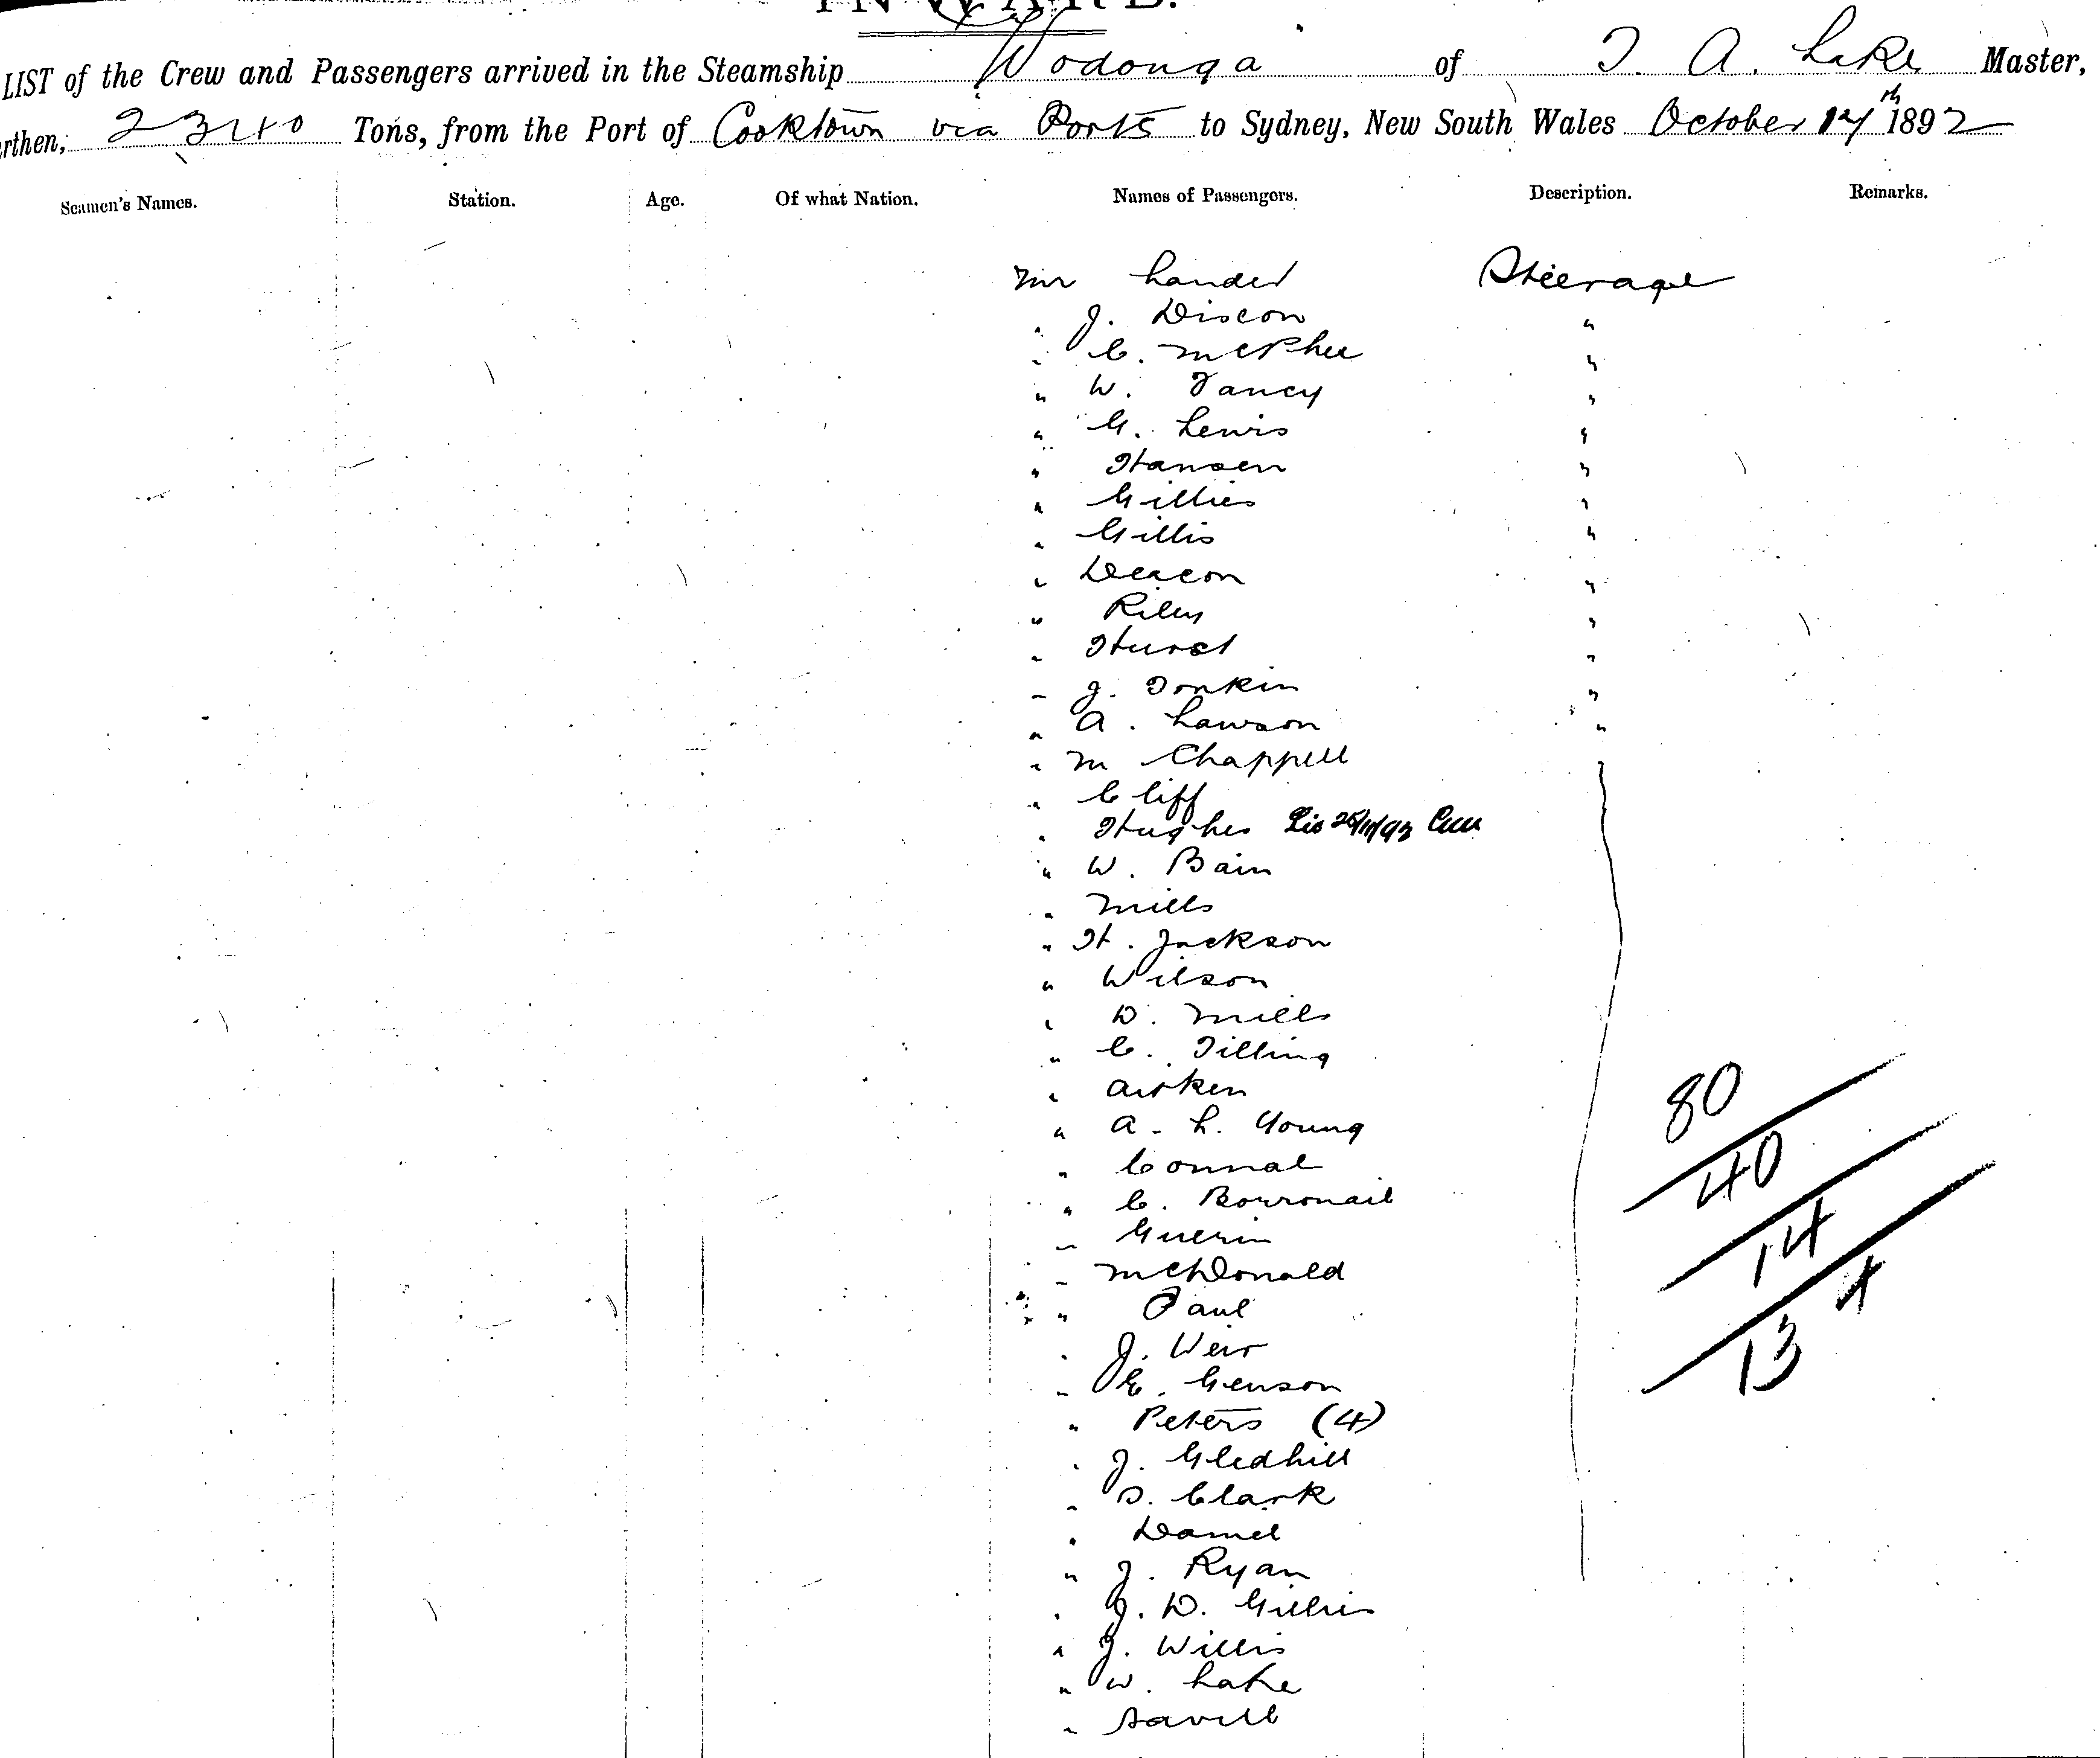 INWARD.
LIST of the Crew and Passengers arrived in the Steamship Wodonga of T. A. Lake Master,
rthen, 2340 Tons, from the Port of Cooktown via Ports to Sydney, New South Wales October 14th 1892
Seamen's Names. Station. Age. Of what Nation. Names of Passengers. Description. Remarks.
Mr Lander Steerage
" J. Discon "
" C. McPhee "
" W. Fancy "
" G. Lewis "
" Hansen "
" Gillies "
" Gillis "
" Deacon "
" Riley "
" Hurst "
" J. Tonkin "
" A. Lawson "
" M Chappell
" Cliff
" Hughes 93
" W. Bain
" Mills
" H. Jackson
" Wilson
" D. Mills
" C. Tilling
" Aitken
" A. L. Young
" Connal
" C. Borronail
" Guerin
" McDonald
" Paul
" J. Weir
" E. Genson
" Peters (4)
" J. Gledhill
" S. Clark
" Daniel
" J. Ryan
" J. D. Gillies
" J. Willis
" W. Lake
" Savill
80
40
14
13